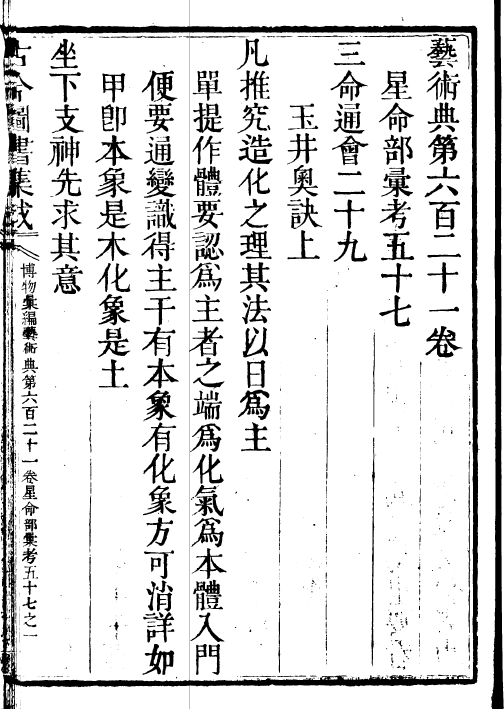 藝術典第六百二十一卷
星命部彙考五十七
三命通會二十九
玉井奧訣上
凡推究造化之理其法以日爲主
單提作體要認爲主者之端爲化氣爲本體入門
便要通變識得主干有本象有化象方可消詳如
甲卽本象是木化象是土
坐下支神先求其意
古今圖書集成
博物彙編藝術典第六百二十一卷星命部彙考五十七之一